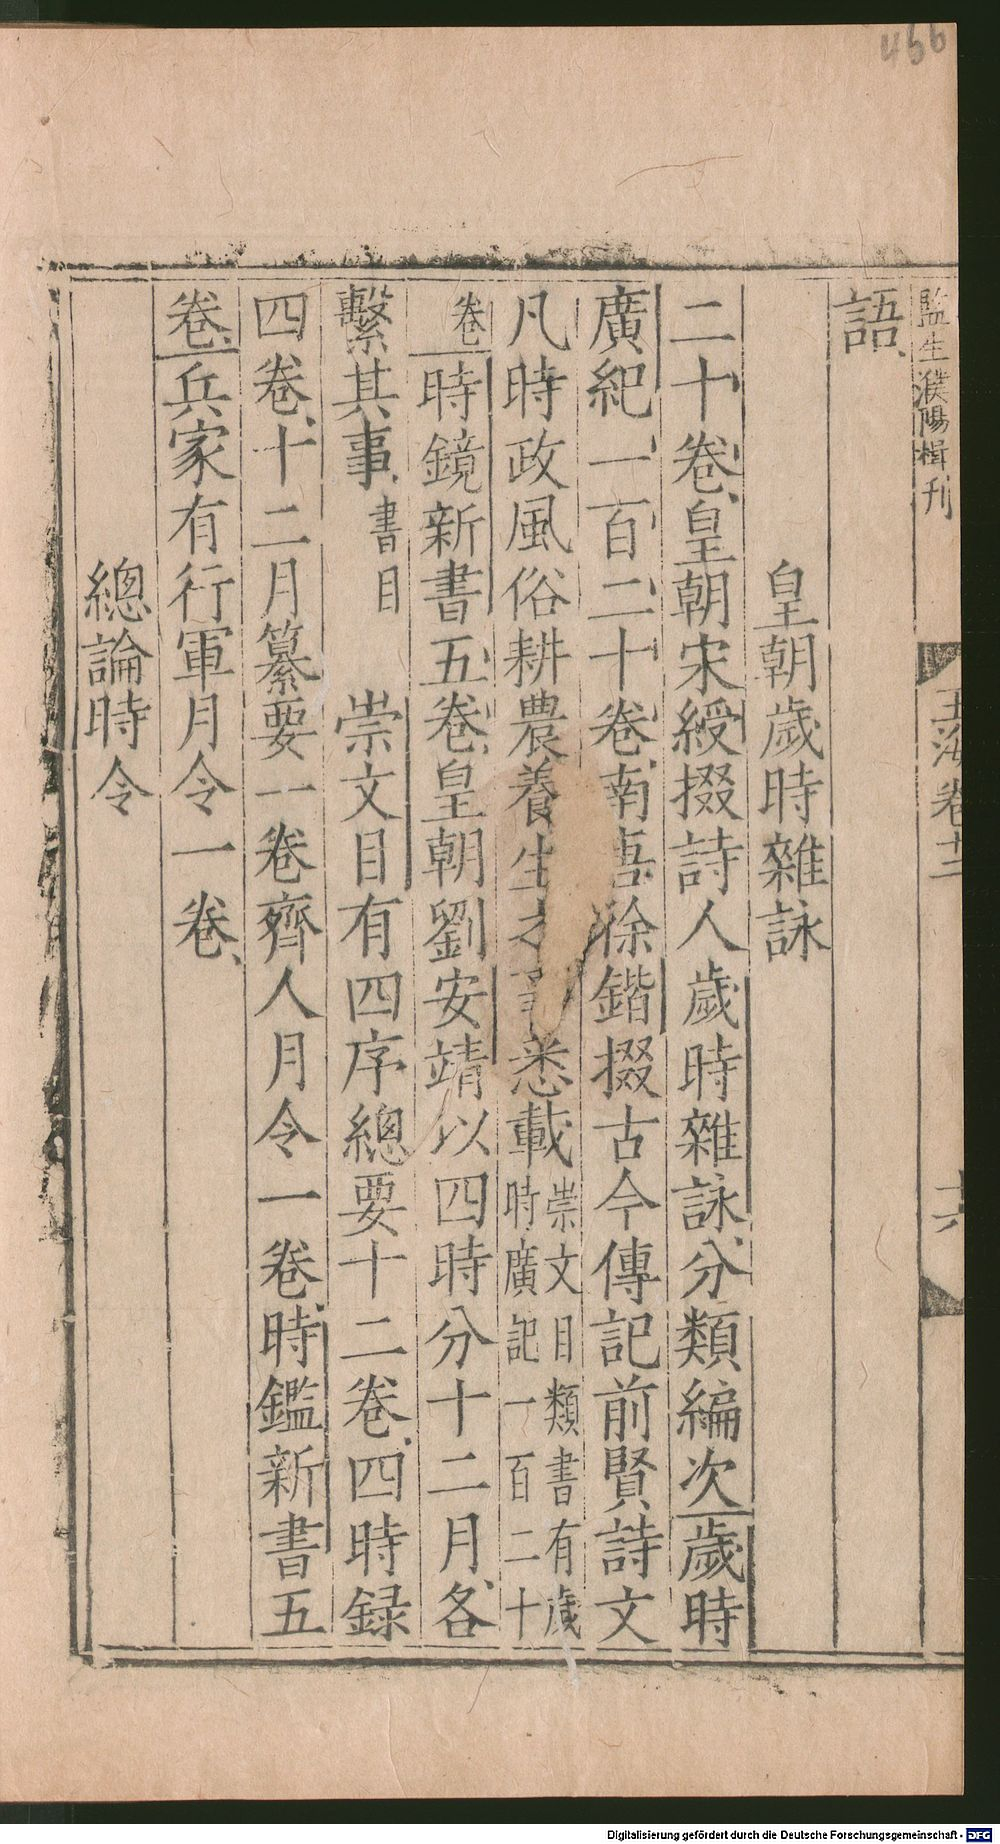 466
監生濮陽楫刊
玉海卷十二
十六
語
皇朝歲時雜詠
二十卷皇朝宋綬掇詩人歲時雜詠分類編次歲時
廣紀一百二十卷南徐鍇掇古今傳記前賢詩文
凡時政風俗耕農養生悉載崇文目類書有歲
時廣記一百二十
卷時鏡新書五卷皇朝劉安靖以四時分十二月各
繫其事書目崇文目有四序總要十二卷四時録
四卷十二月纂要一卷齊人月令一卷時鑑新書五
卷兵家有行軍月令一卷
總論時令
Digitalisierung gefördert durch die Deutsche Forschungsgemeinschaft - DFG